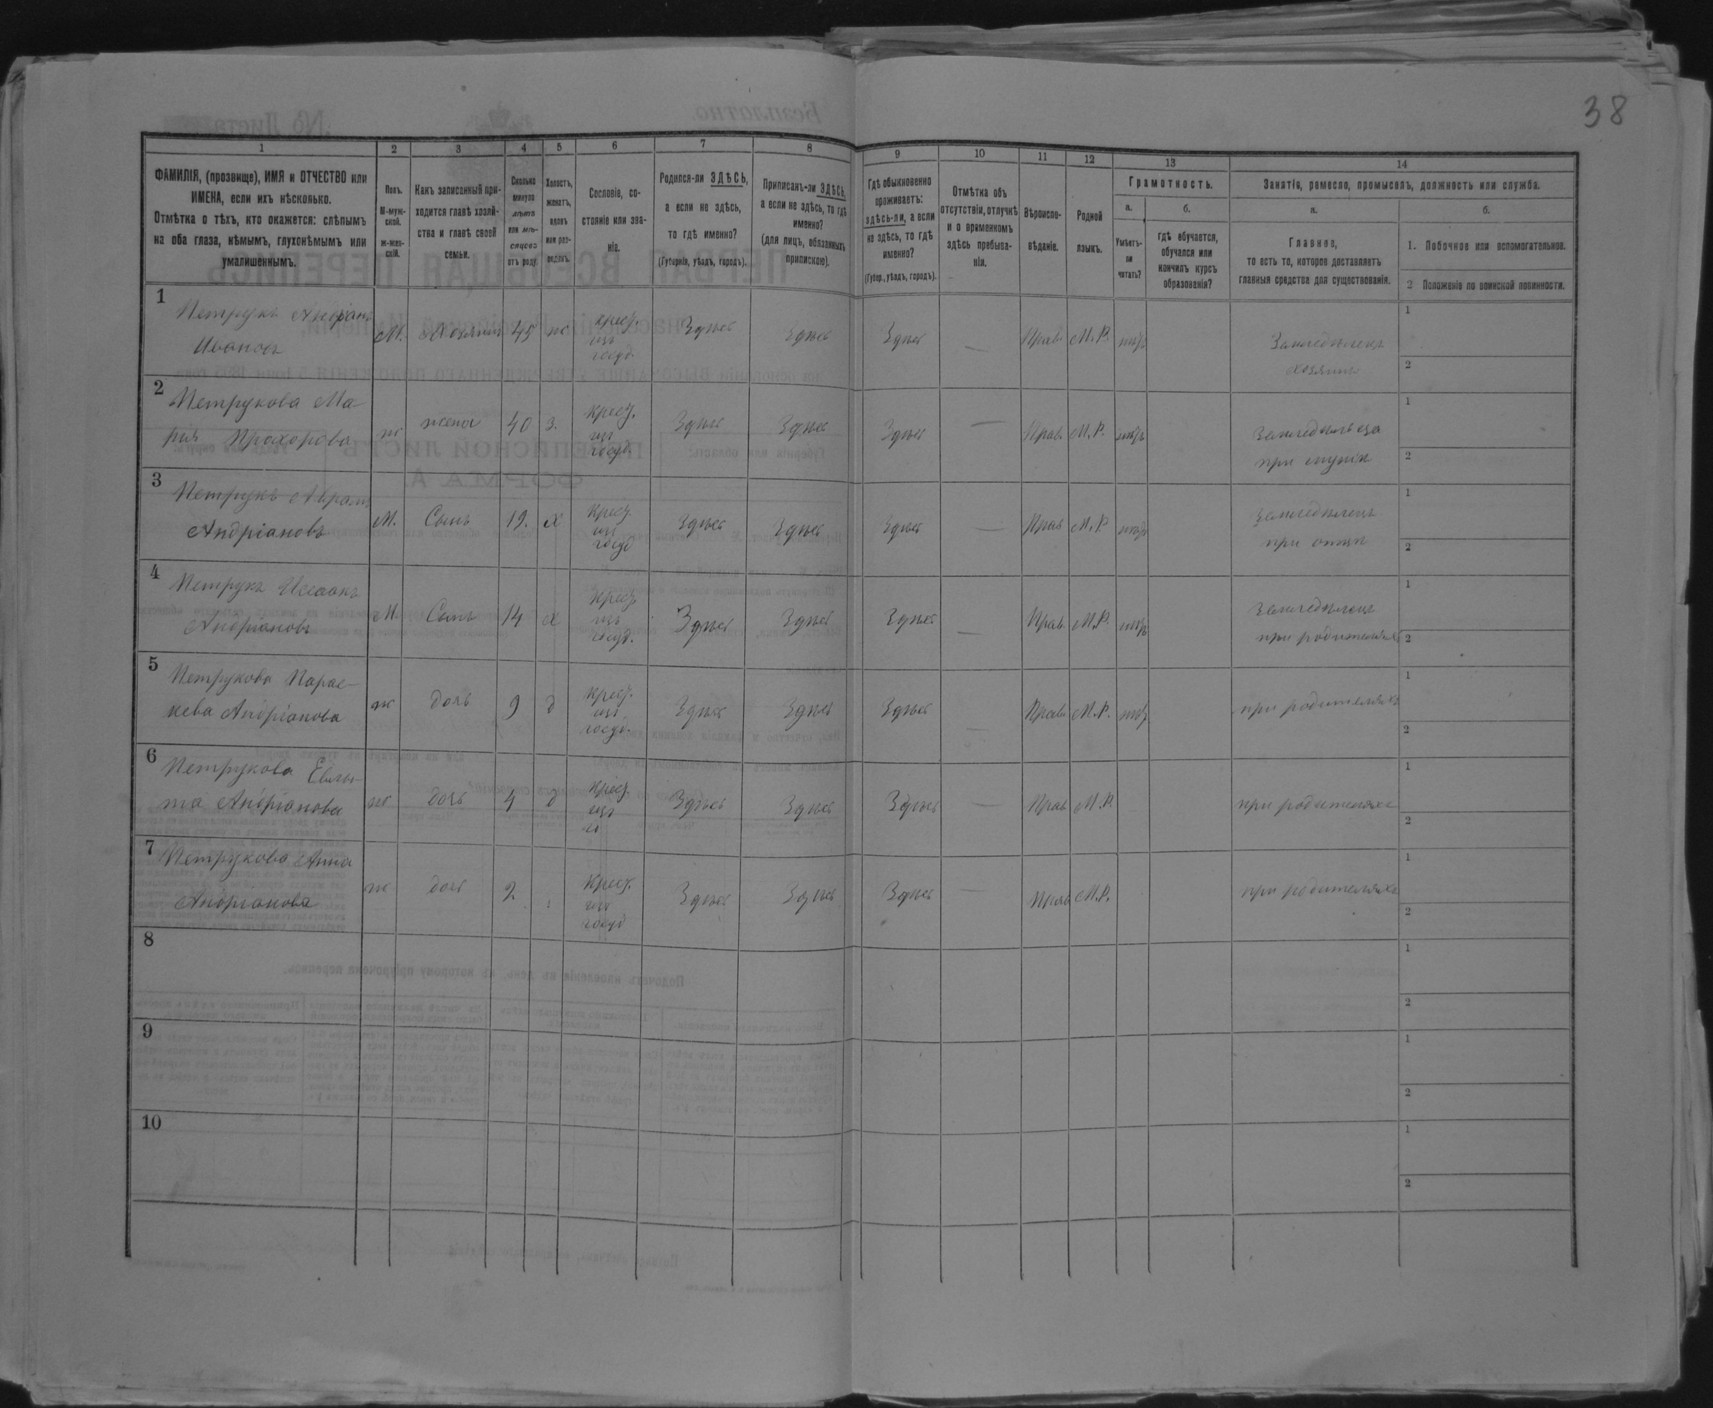 38
1 2 3 4 5 6 7 8 9 10 11 12 13 14
ФАМИЛІЯ, (прозвище), ИМЯ и ОТЧЕСТВО или
ИМЕНА, если ихъ нѣсколько.
Отмѣтка о тѣхъ, кто окажется: слѣпымъ
на оба глаза, нѣмымъ, глухонѣмымъ или
умалишеннымъ.
Полъ.
М-муж-
ской.
Ж-жен-
скій.
Какъ записанный при-
ходится главѣ хозяй-
ства и главѣ своей
семьи.
Сколько
минуло
лѣтъ
или мѣ-
сяцевъ
отъ роду.
Холостъ,
женатъ,
вдовъ
или раз-
веденъ.
Сословіе, со-
стояніе или зва-
ніе.
Родился-ли ЗДѢСЬ,
а если не здѣсь,
то гдѣ именно?
(Губернія, уѣздъ, городъ).
Приписанъ-ли ЗДѢСЬ,
а если не здѣсь, то гдѣ
именно?
(для лицъ, обязанныхъ
припискою).
Гдѣ обыкновенно
проживаетъ:
здѣсь-ли, а если
не здѣсь, то гдѣ
именно?
(Губер., уѣздъ, городъ).
Отмѣтка объ
отсутствіи, отлучкѣ
и о временномъ
здѣсь пребыва-
ніи.
Вѣроиспо-
вѣданіе.
Родной
языкъ.
Грамотность.
а.
Умѣетъ-
ли
читать?
б.
гдѣ обучается,
обучался или
кончилъ курсъ
образованія?
Занятіе, ремесло, промыселъ, должность или служба.
а.
Главное,
то есть то, которое доставляетъ
главныя средства для существованія.
б.
1. Побочное или вспомогательное.
2 Положеніе по воинской повинности.
1 Петрукъ Андріанъ
Ивановъ
М. Хозяинъ 45 ж крест.
изъ
госуд. Здѣсь Здѣсь Здѣсь — Прав. М.Р. нѣтъ Земледѣлецъ
хозяинъ
1
2
2 Петрукова Ма-
рія Прохорова
ж жена 40 з. крест.
изъ
госуд. Здѣсь Здѣсь Здѣсь — Прав. М.Р. нѣтъ
при мужѣ
1
2
3 Петрукъ Аврамъ
Андріановъ
М. Сынъ 19. х крест.
изъ
госуд Здѣсь Здѣсь Здѣсь — Прав М.Р. нѣтъ Земледѣлецъ
при отцѣ
1
2
4 Петрукъ Исаакъ
Андріановъ
М. Сынъ 14 х крест.
изъ
госуд. Здѣсь Здѣсь Здѣсь — Прав. М.Р. нѣтъ Земледѣлецъ
при родителяхъ
1
2
5 Петрукова Парас-
кева Андріанова
ж дочь 9 д крест.
изъ
госуд. Здѣсь Здѣсь Здѣсь — Прав. М.Р. нѣтъ при родителяхъ
1
2
6 Петрукова
Андріанова
ж дочь 4 д крест.
изъ Здѣсь Здѣсь Здѣсь — Прав. М.Р. при родителяхъ
1
2
7 Петрукова Анна
Андріанова
ж дочь 2. крест.
изъ
госуд Здѣсь Здѣсь Здѣсь — Прав М.Р. при родителяхъ
1
2
8
1
2
9
1
2
10
1
2